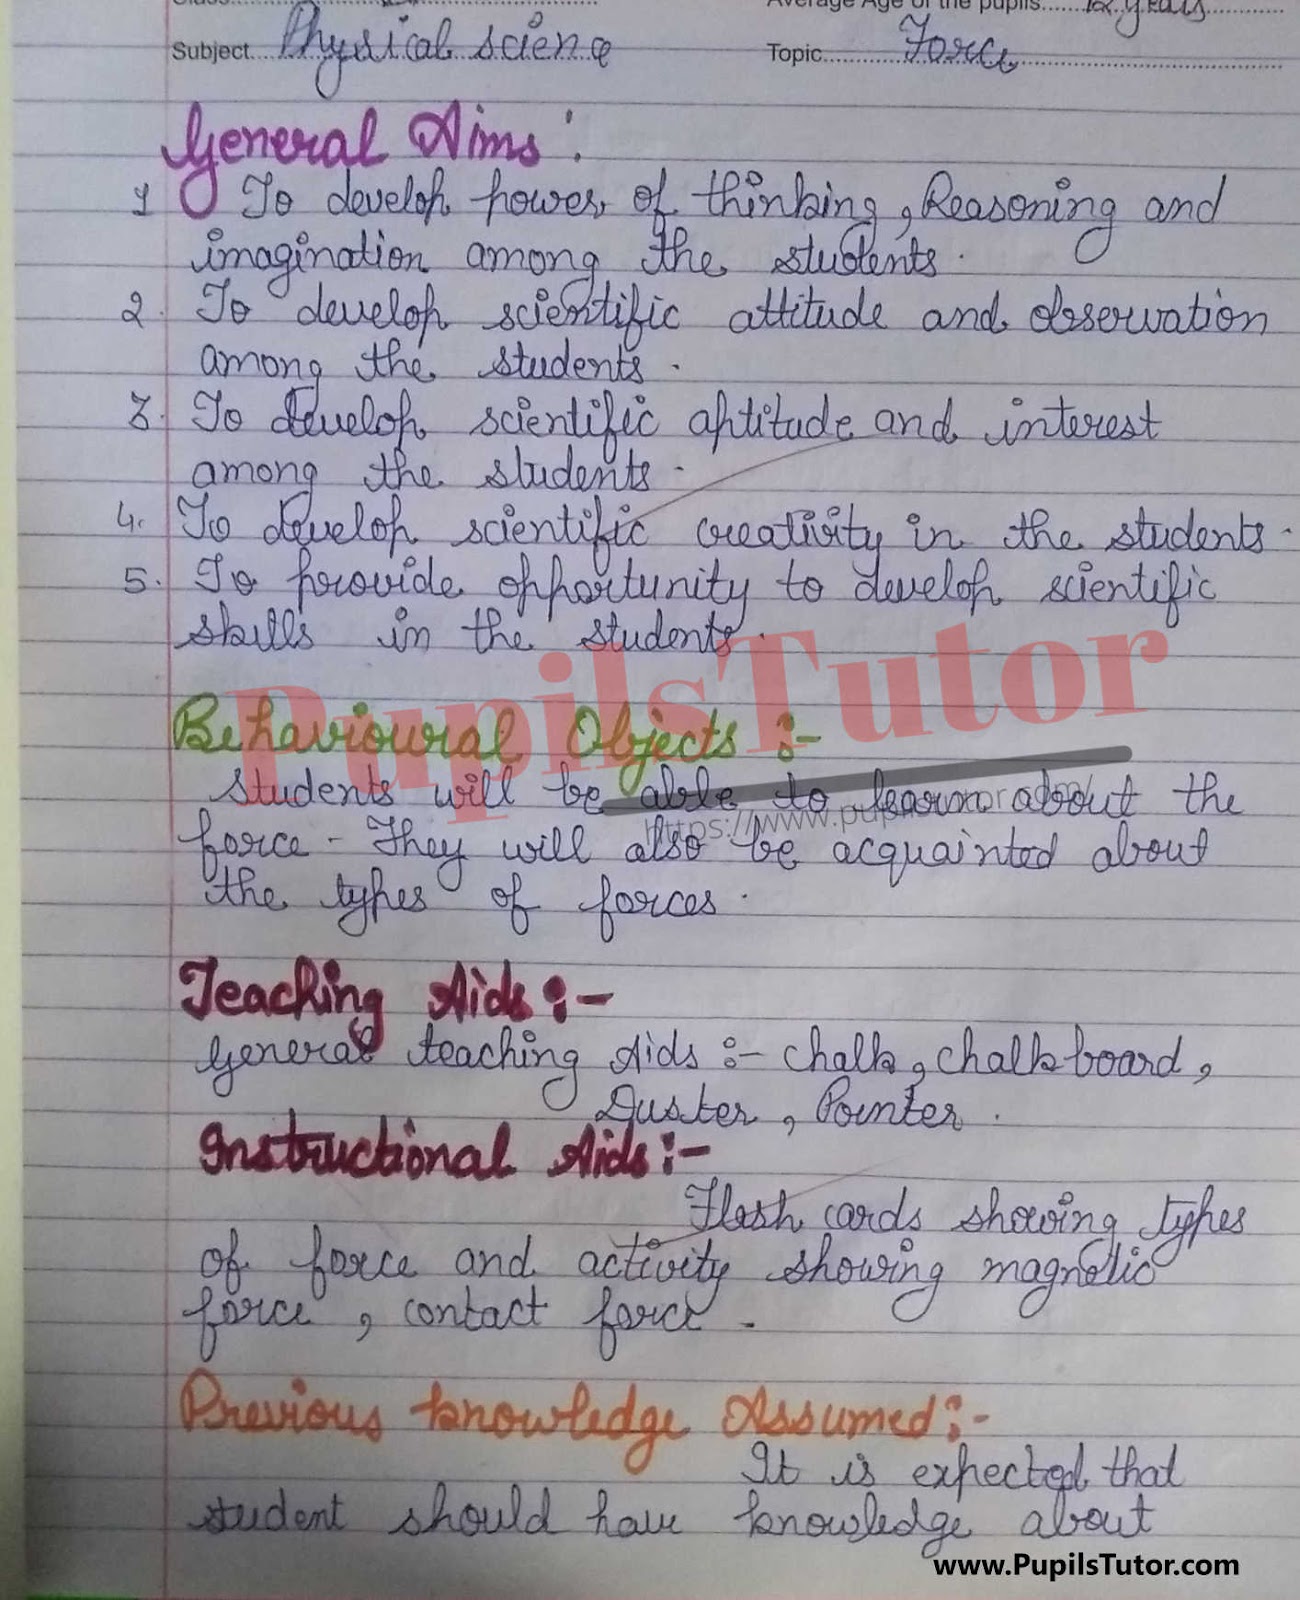 Average Age of the pupils......12 years
Subject....Physical science
Topic..........Force
General Aims :
1 To develop power of thinking, Reasoning and
imagination among the students.
2. To develop scientific attitude and observation
among the students.
3. To develop scientific aptitude and interest
among the students.
4. To develop scientific creativity in the students.
5. To provide opportunity to develop scientific
skills in the students.
PupilsTutor
Behavioural Objects :-
students will be able to learn about the
https://www.pupilstutor.com/
force - They will also be acquainted about
the types of forces.
Teaching Aids :-
General teaching Aids :- chalk, chalkboard,
Duster, Pointer.
Instructional Aids :-
Flash cards showing types
of force and activity showing magnetic
force, contact force.
Previous knowledge Assumed :-
It is expected that
student should have knowledge about
www.PupilsTutor.com